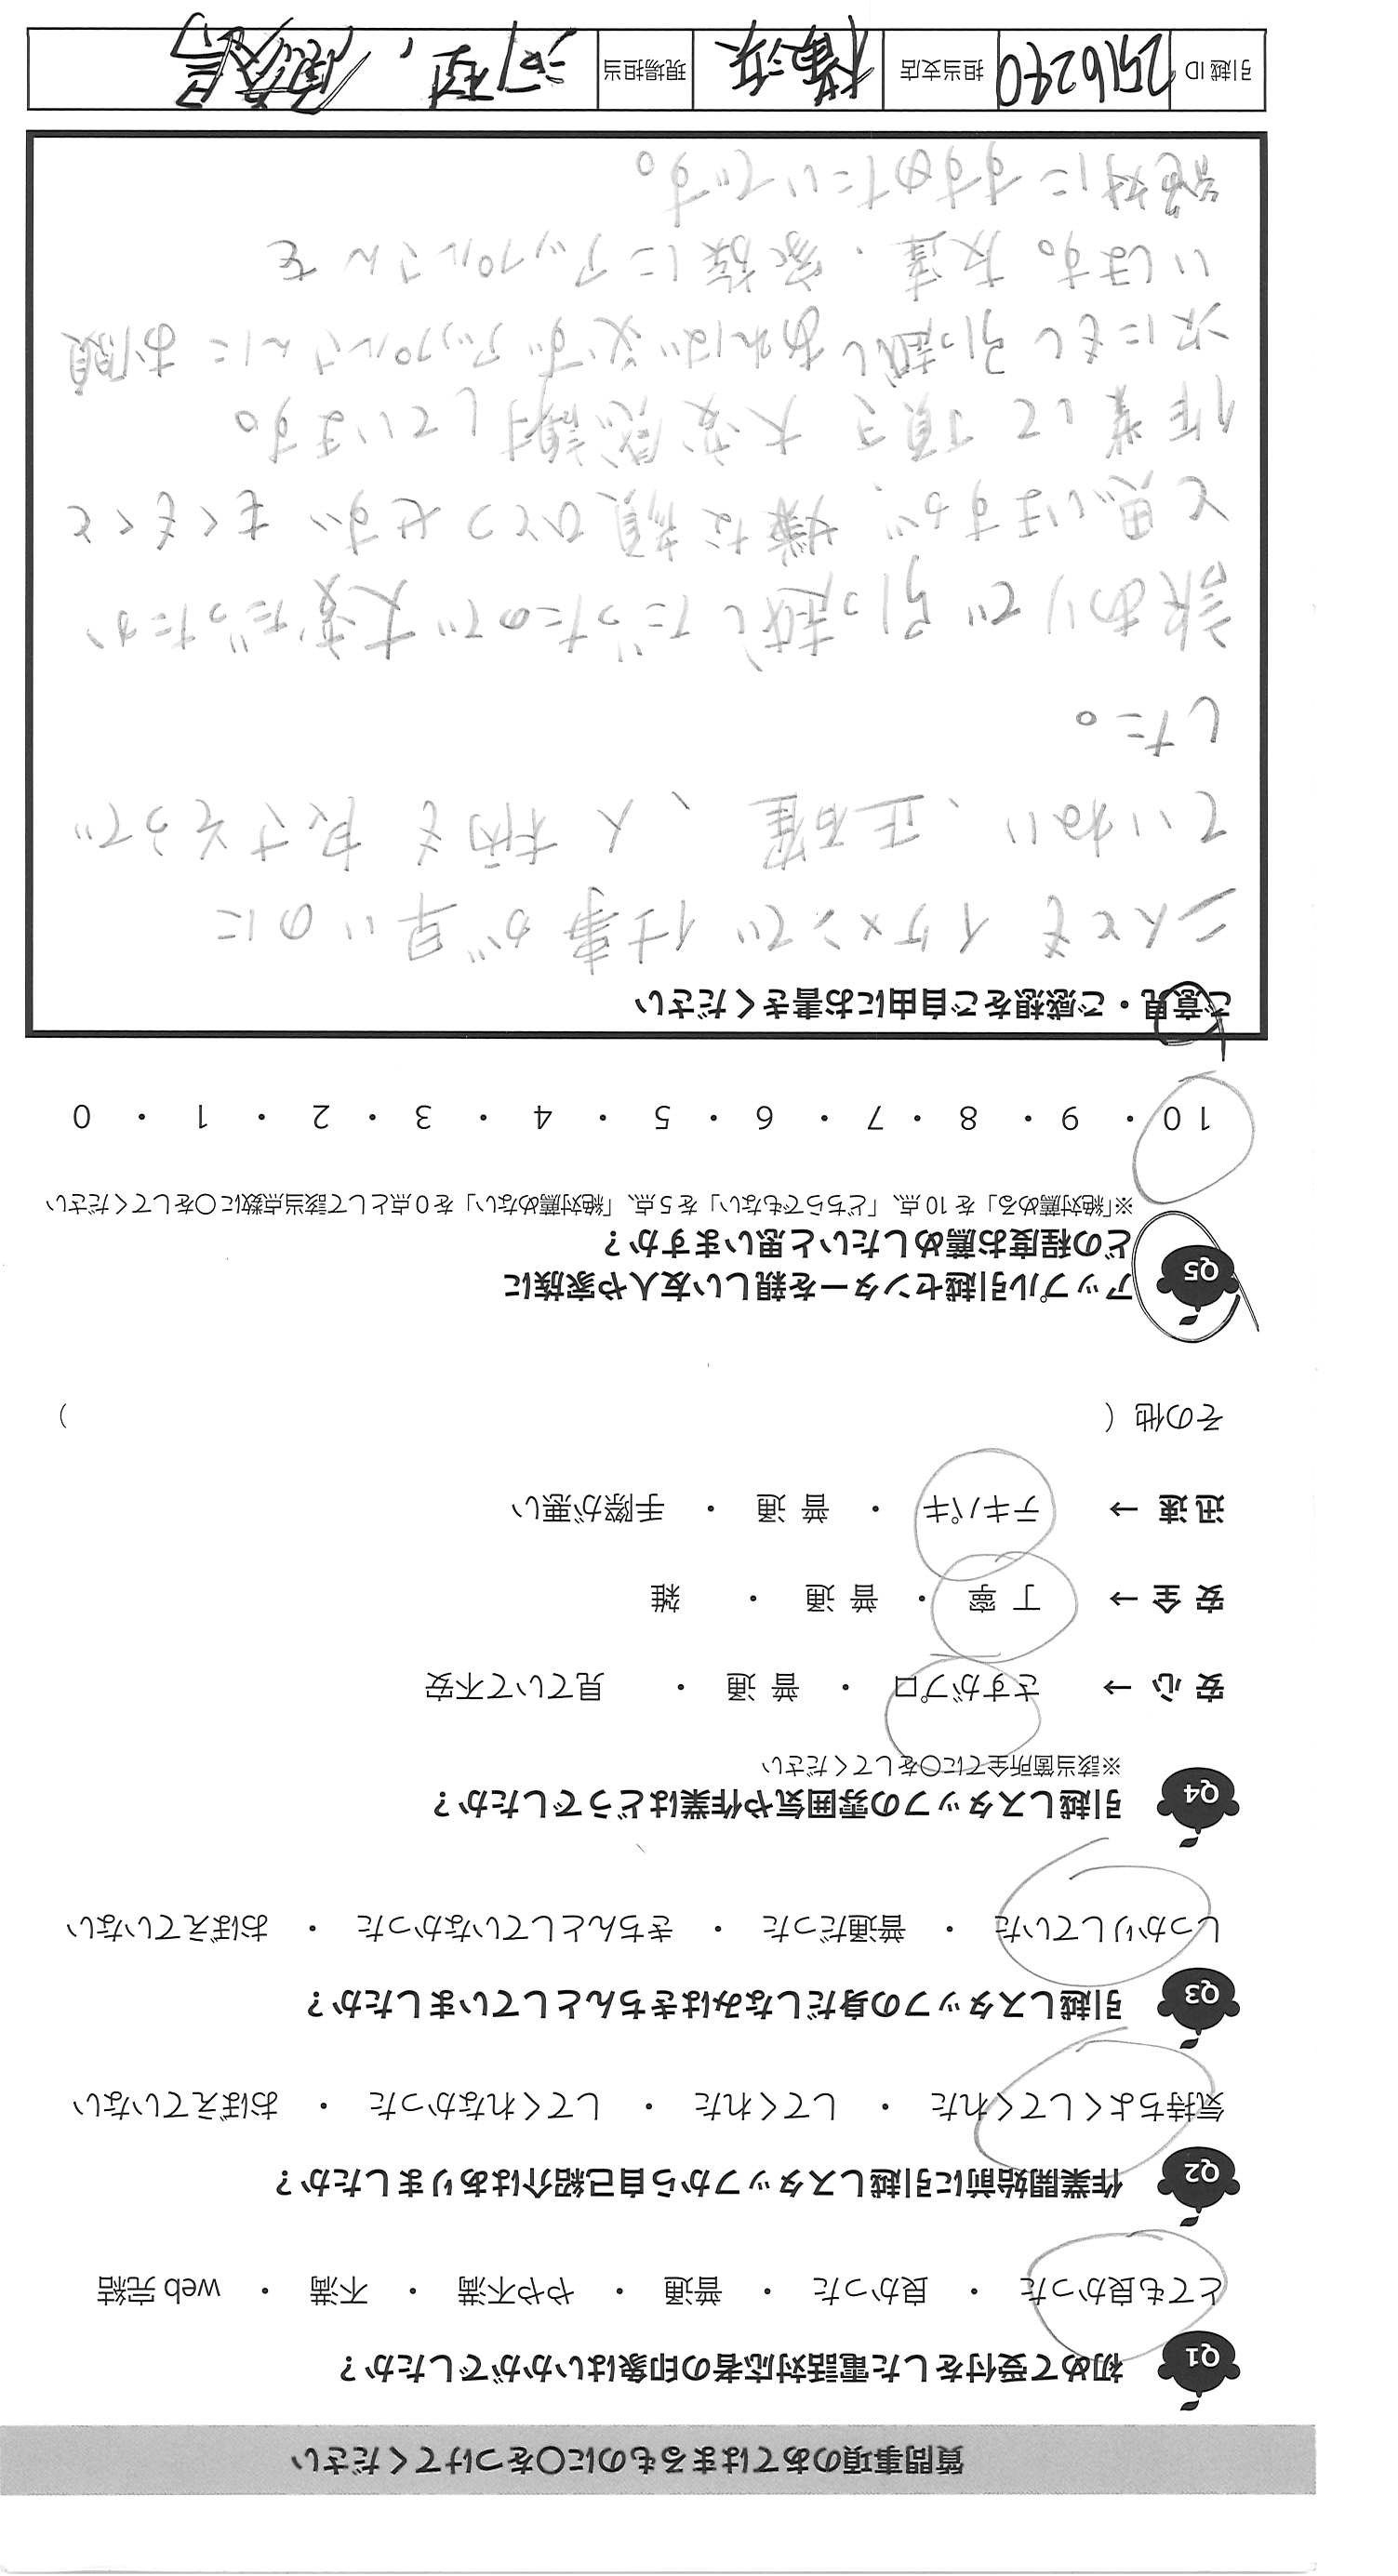 質問事項のあてはまるものに〇をつけてください
Q1 初めて受付をした電話対応者の印象はいかがでしたか？
とても良かった ・ 良かった ・ 普通 ・ やや不満 ・ 不満 ・ web 完結
Q2 作業開始前に引越しスタッフから自己紹介はありましたか？
気持ちよくしてくれた ・ してくれた ・ してくれなかった ・ おぼえていない
Q3 引越しスタッフの身だしなみはきちんとしていましたか？
しっかりしていた ・ 普通だった ・ きちんとしていなかった ・ おぼえていない
Q4 引越しスタッフの雰囲気や作業はどうでしたか？
※該当箇所全てに〇をしてください
安 心 → さすがプロ ・ 普 通 ・ 見ていて不安
安 全 → 丁 寧 ・ 普 通 ・ 雑
迅 速 → テキパキ ・ 普 通 ・ 手際が悪い
その他（ ）
Q5 アップル引越センターを親しい友人や家族に
どの程度お薦めしたいと思いますか？
※「絶対薦める」を 10 点、「どちらでもない」を 5 点、「絶対薦めない」を 0 点として該当点数に〇をしてください
10 ・ 9 ・ 8 ・ 7 ・ 6 ・ 5 ・ 4 ・ 3 ・ 2 ・ 1 ・ 0
ご意見・ご感想をご自由にお書きください
二人とも イケメンで 仕事が 早いのに
ていねい、正確、人柄も 良さそうで
した。
訳ありで 引っ越しだったので 大変だったか
と思いますが、嫌な顔ひとつせず、もくもくと
作業して頂き 大変感謝しています。
次にもし引っ越しあれば 必ずアップルさんに お願
いします。友達・家族にアップルさんを
絶対にすすめたいです。
引越 ID 2516240 担当支店 横浜 現場担当 河村,